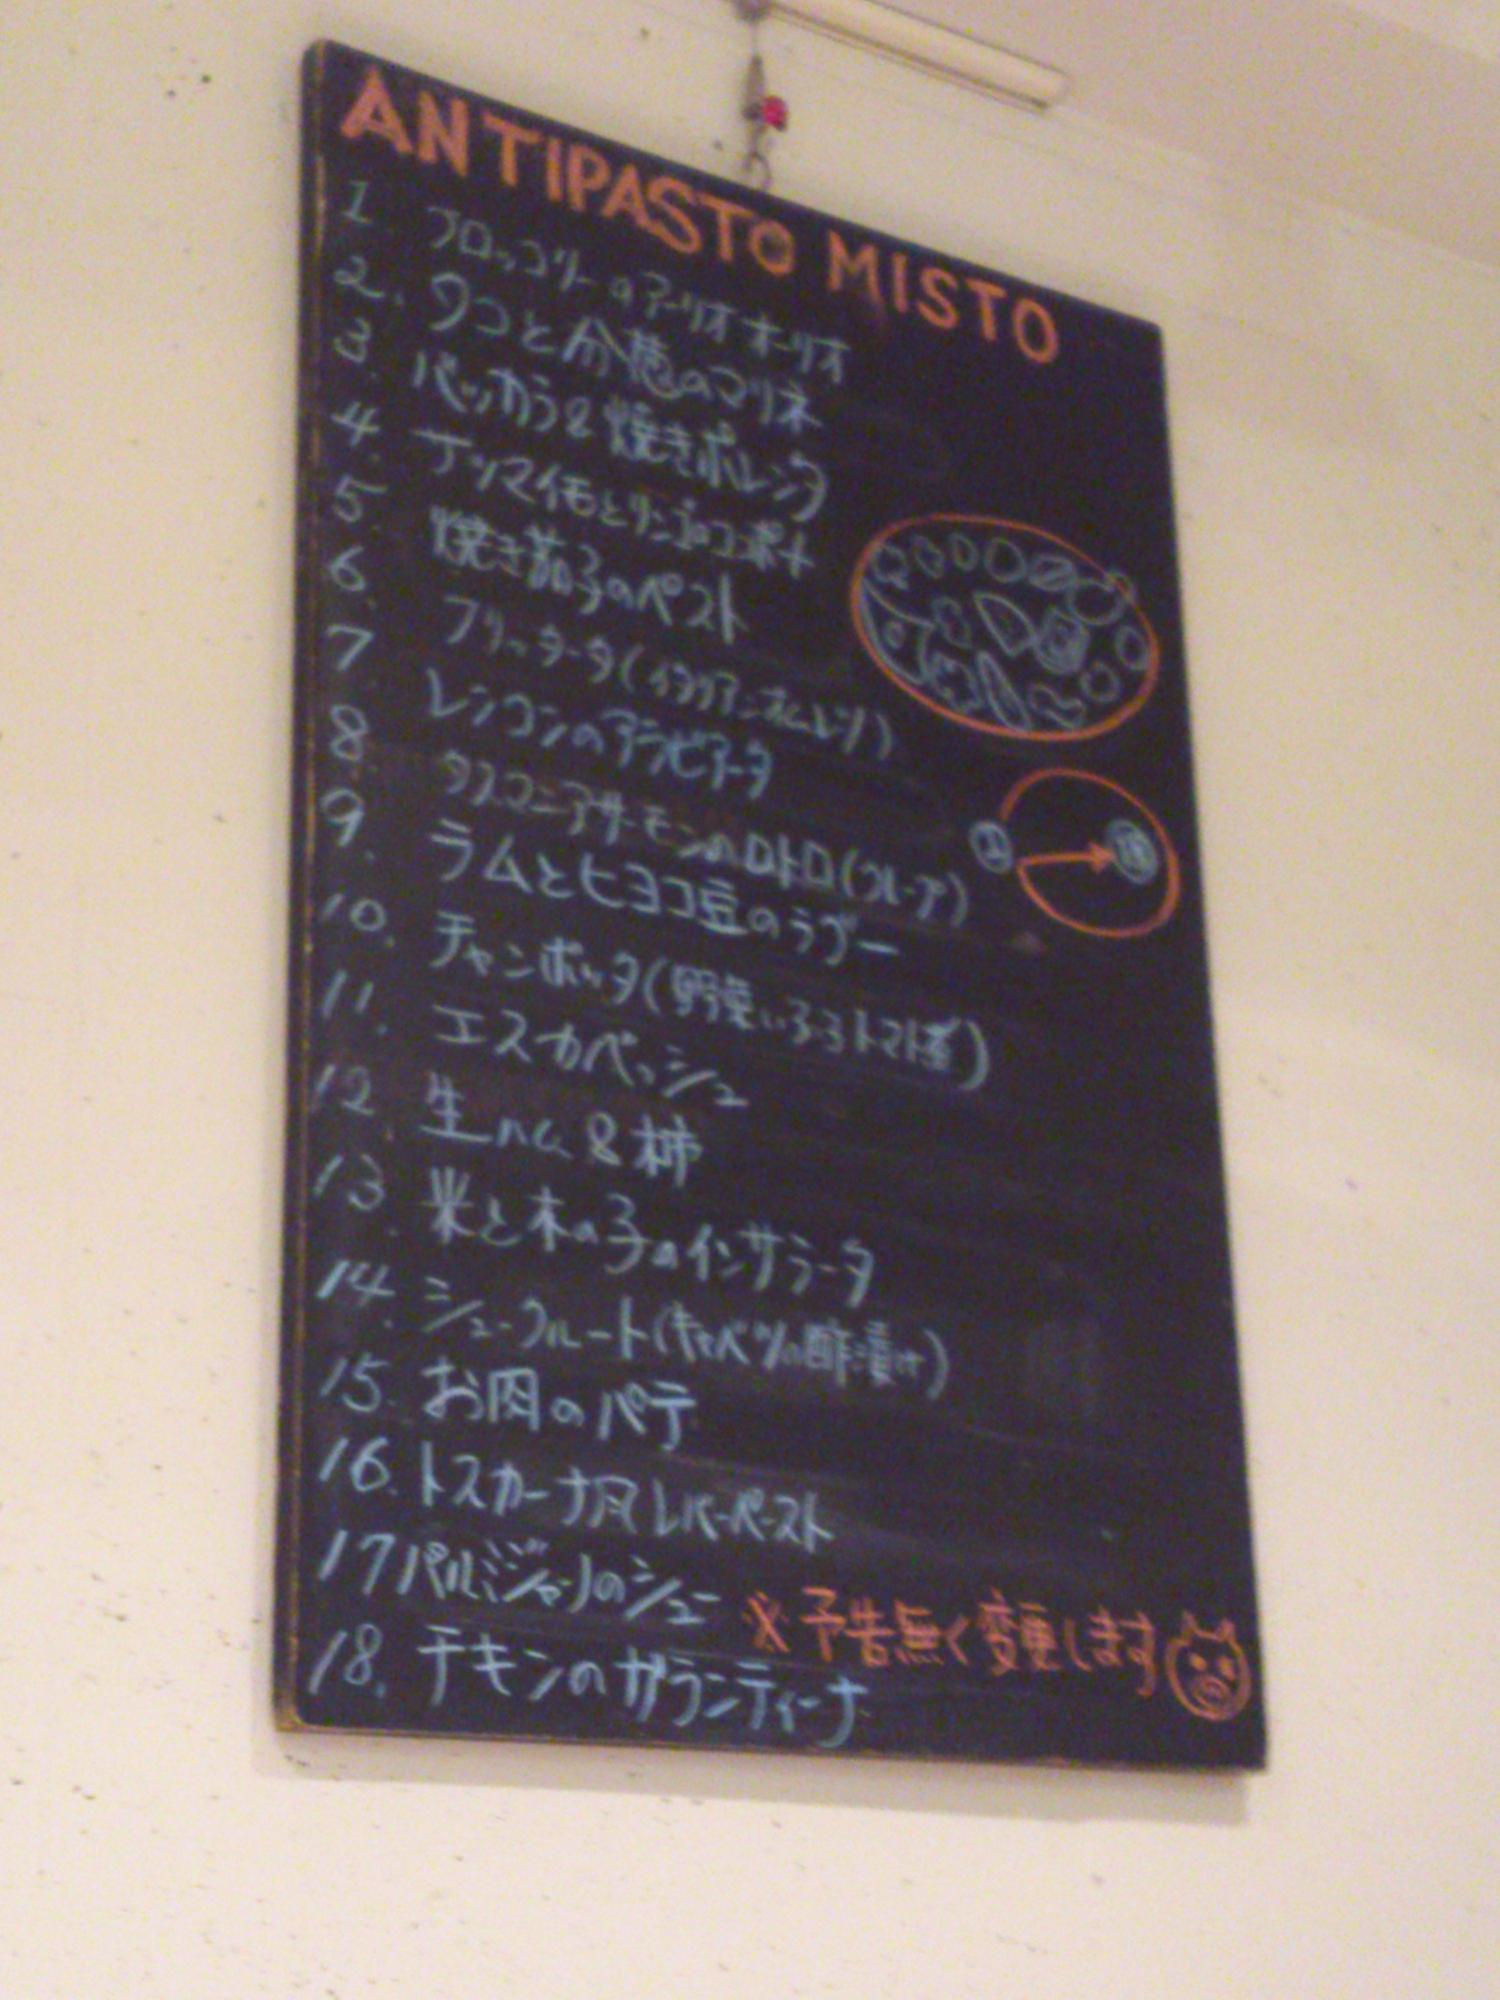 ANTIPASTO MISTO
1. ブロッコリーのアーリオオーリオ
2. タコと分葱のマリネ
3. バッカラ&焼きポレンタ
4. サツマイモとリンゴのコンポート
5. 焼き茄子のペスト
6. フリッタータ(イタリアンオムレツ)
7. レンコンのアラビアータ
8. タスマニアサーモンのロトロ(クレープ)
9. ラムとヒヨコ豆のラグー
10. チャンボッタ(野菜いろいろトマト煮)
11. エスカベッシュ
12 生ハム&柿
13. 米と木の子のインサラータ
14. シュークルート(キャベツの酢漬け)
15. お肉のパテ
16. トスカーナ風レバーペースト
17 パルミジャーノのシュー
※予告無く変更します
18. チキンのガランティーナ